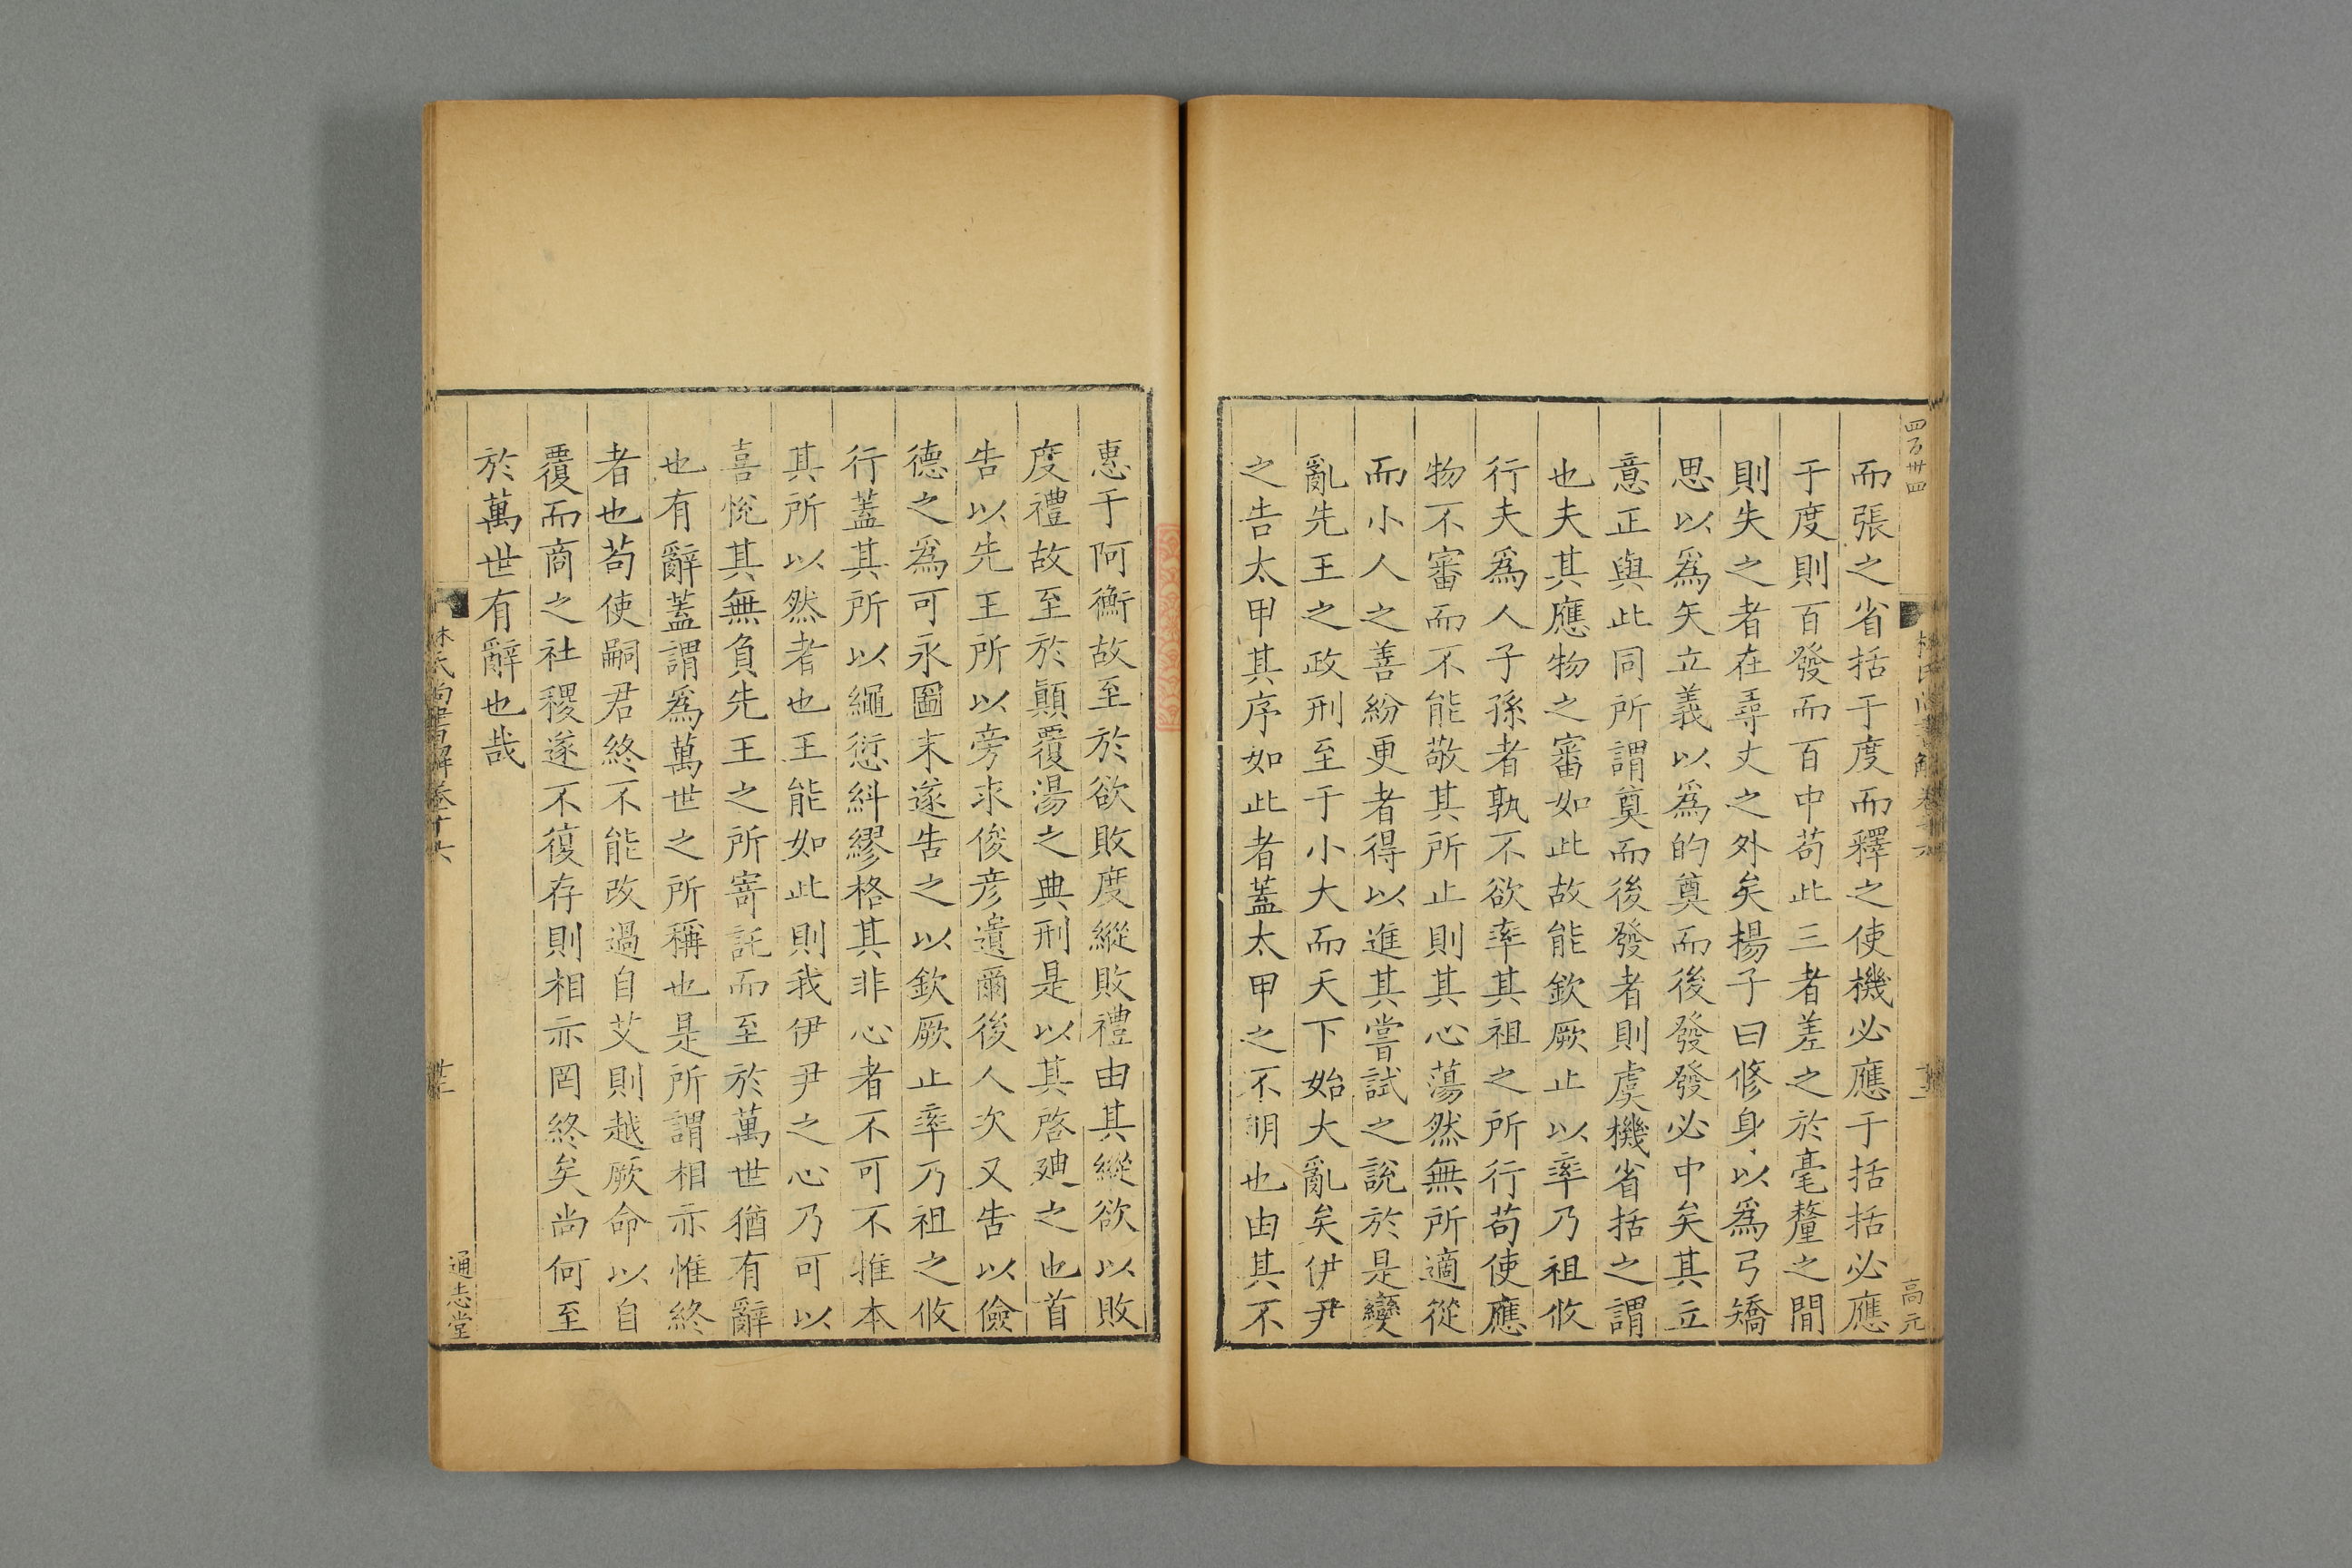 四百卅四
而張之省括于度而釋之使機必應于括括必應
于度則百發而百中苟此三者差之於毫釐之間
則失之者在尋丈之外矣揚子曰修身以爲弓矯
思以爲矢立義以爲的奠而後發發必中矣其立
意正與此同所謂奠而後發者則虞機省括之謂
也夫其應物之審如此故能欽厥止以率乃祖攸
行夫爲人子孫者孰不欲率其祖之所行苟使應
物不審而不能敬其所止則其心蕩然無所適從
而小人之善紛更者得以進其嘗試之說於是變
亂先王之政刑至于小大而天下始大亂矣伊尹
之告太甲其序如此者蓋太甲之不明也由其不
高元
惠于阿衡故至於欲敗度縱敗禮由其縱欲以敗
度禮故至於顚覆湯之典刑是以其啓廸之也首
告以先王所以旁求俊彦遺爾後人次又告以儉
德之爲可永圖末遂告之以欽厥止率乃祖之攸
行蓋其所以繩愆糾繆格其非心者不可不推本
其所以然者也王能如此則我伊尹之心乃可以
喜悅其無負先王之所寄託而至於萬世猶有辭
也有辭蓋謂爲萬世之所稱也是所謂相亦惟終
者也苟使嗣君終不能改過自艾則越厥命以自
覆而商之社稷遂不復存則相亦罔終矣尚何至
於萬世有辭也哉
林氏尚書解卷十六
通志堂